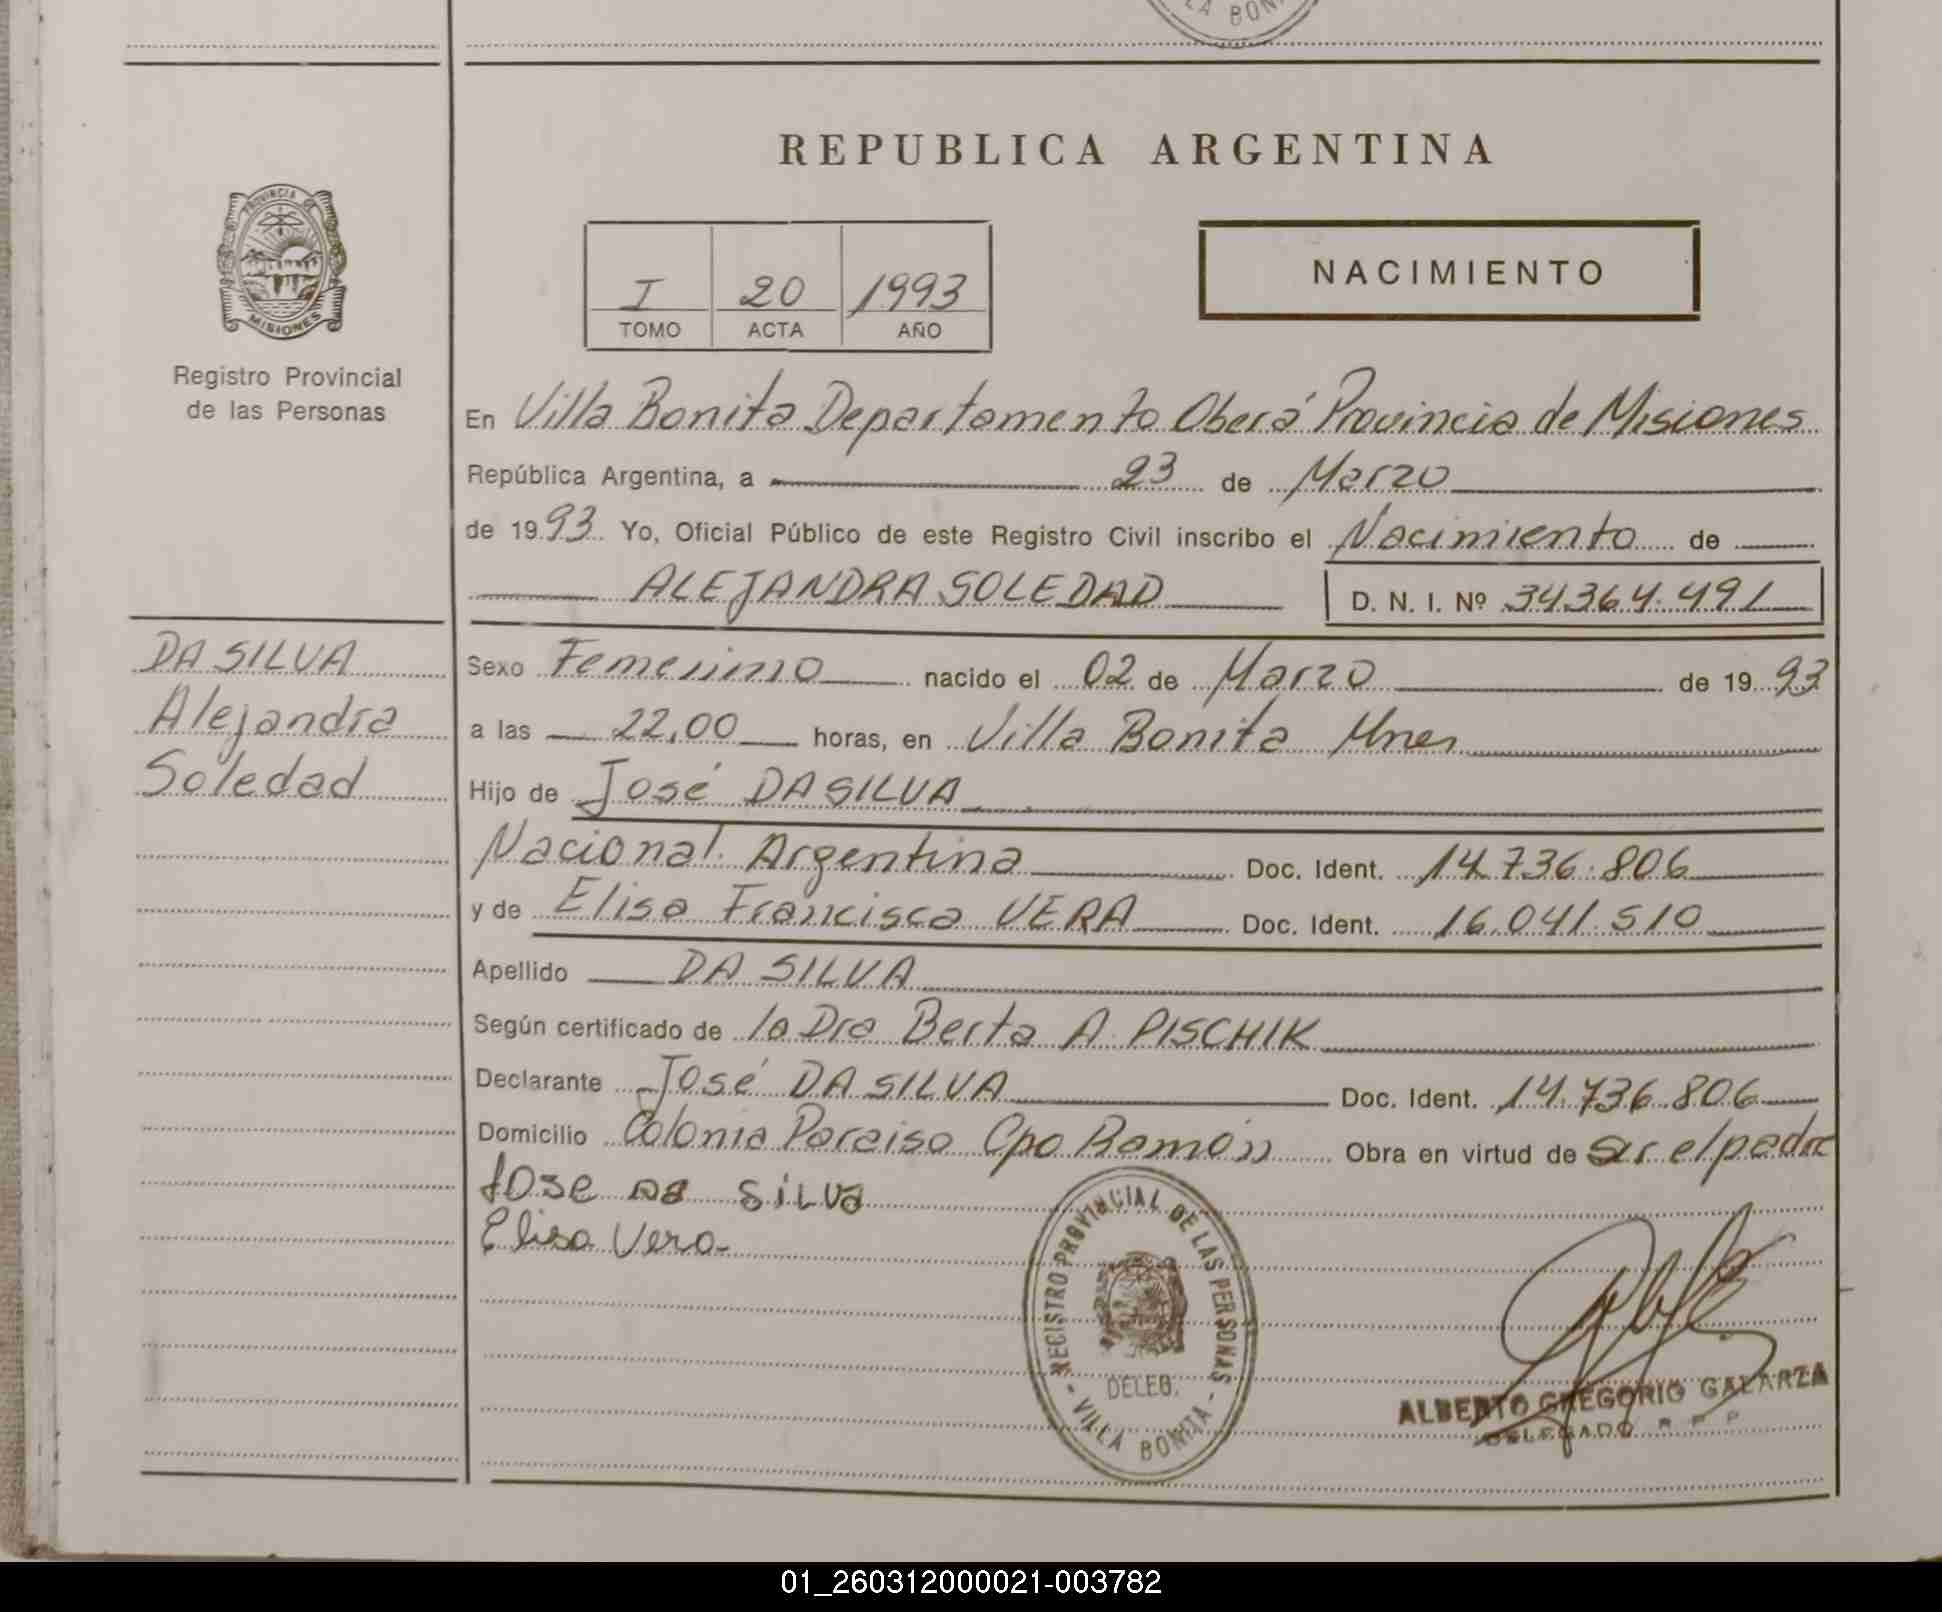 LA BONI
REPUBLICA ARGENTINA
PROVINCIA DE
MISIONES
Registro Provincial
de las Personas
I 20 1993
TOMO ACTA AÑO
NACIMIENTO
En Villa Bonita Departamento Oberá Provincia de Misiones
República Argentina, a 23 de Marzo
de 1993 Yo, Oficial Público de este Registro Civil inscribo el Nacimiento de
ALEJANDRA SOLEDAD D. N. I. Nº 34.364.491
DA SILVA
Alejandra
Soledad
Sexo Femenino nacido el 02 de Marzo de 1993
a las 22,00 horas, en Villa Bonita Mnes
Hijo de José DA SILVA
Nacional. Argentina Doc. Ident. 14.736.806
y de Elisa Francisca VERA Doc. Ident. 16.041.510
Apellido DA SILVA
Según certificado de la Dra Berta A. PISCHIK
Declarante José DA SILVA Doc. Ident. 14.736.806
Domicilio Colonia Paraiso Cpo Ramón Obra en virtud de ser el padre
Jose da SiLVa
Elisa Vera
REGISTRO PROVINCIAL DE LAS PERSONAS
DELEG.
- VILLA BONITA -
ALBERTO GREGORIO GALARZA
DELEGADO R P P
01_260312000021-003782